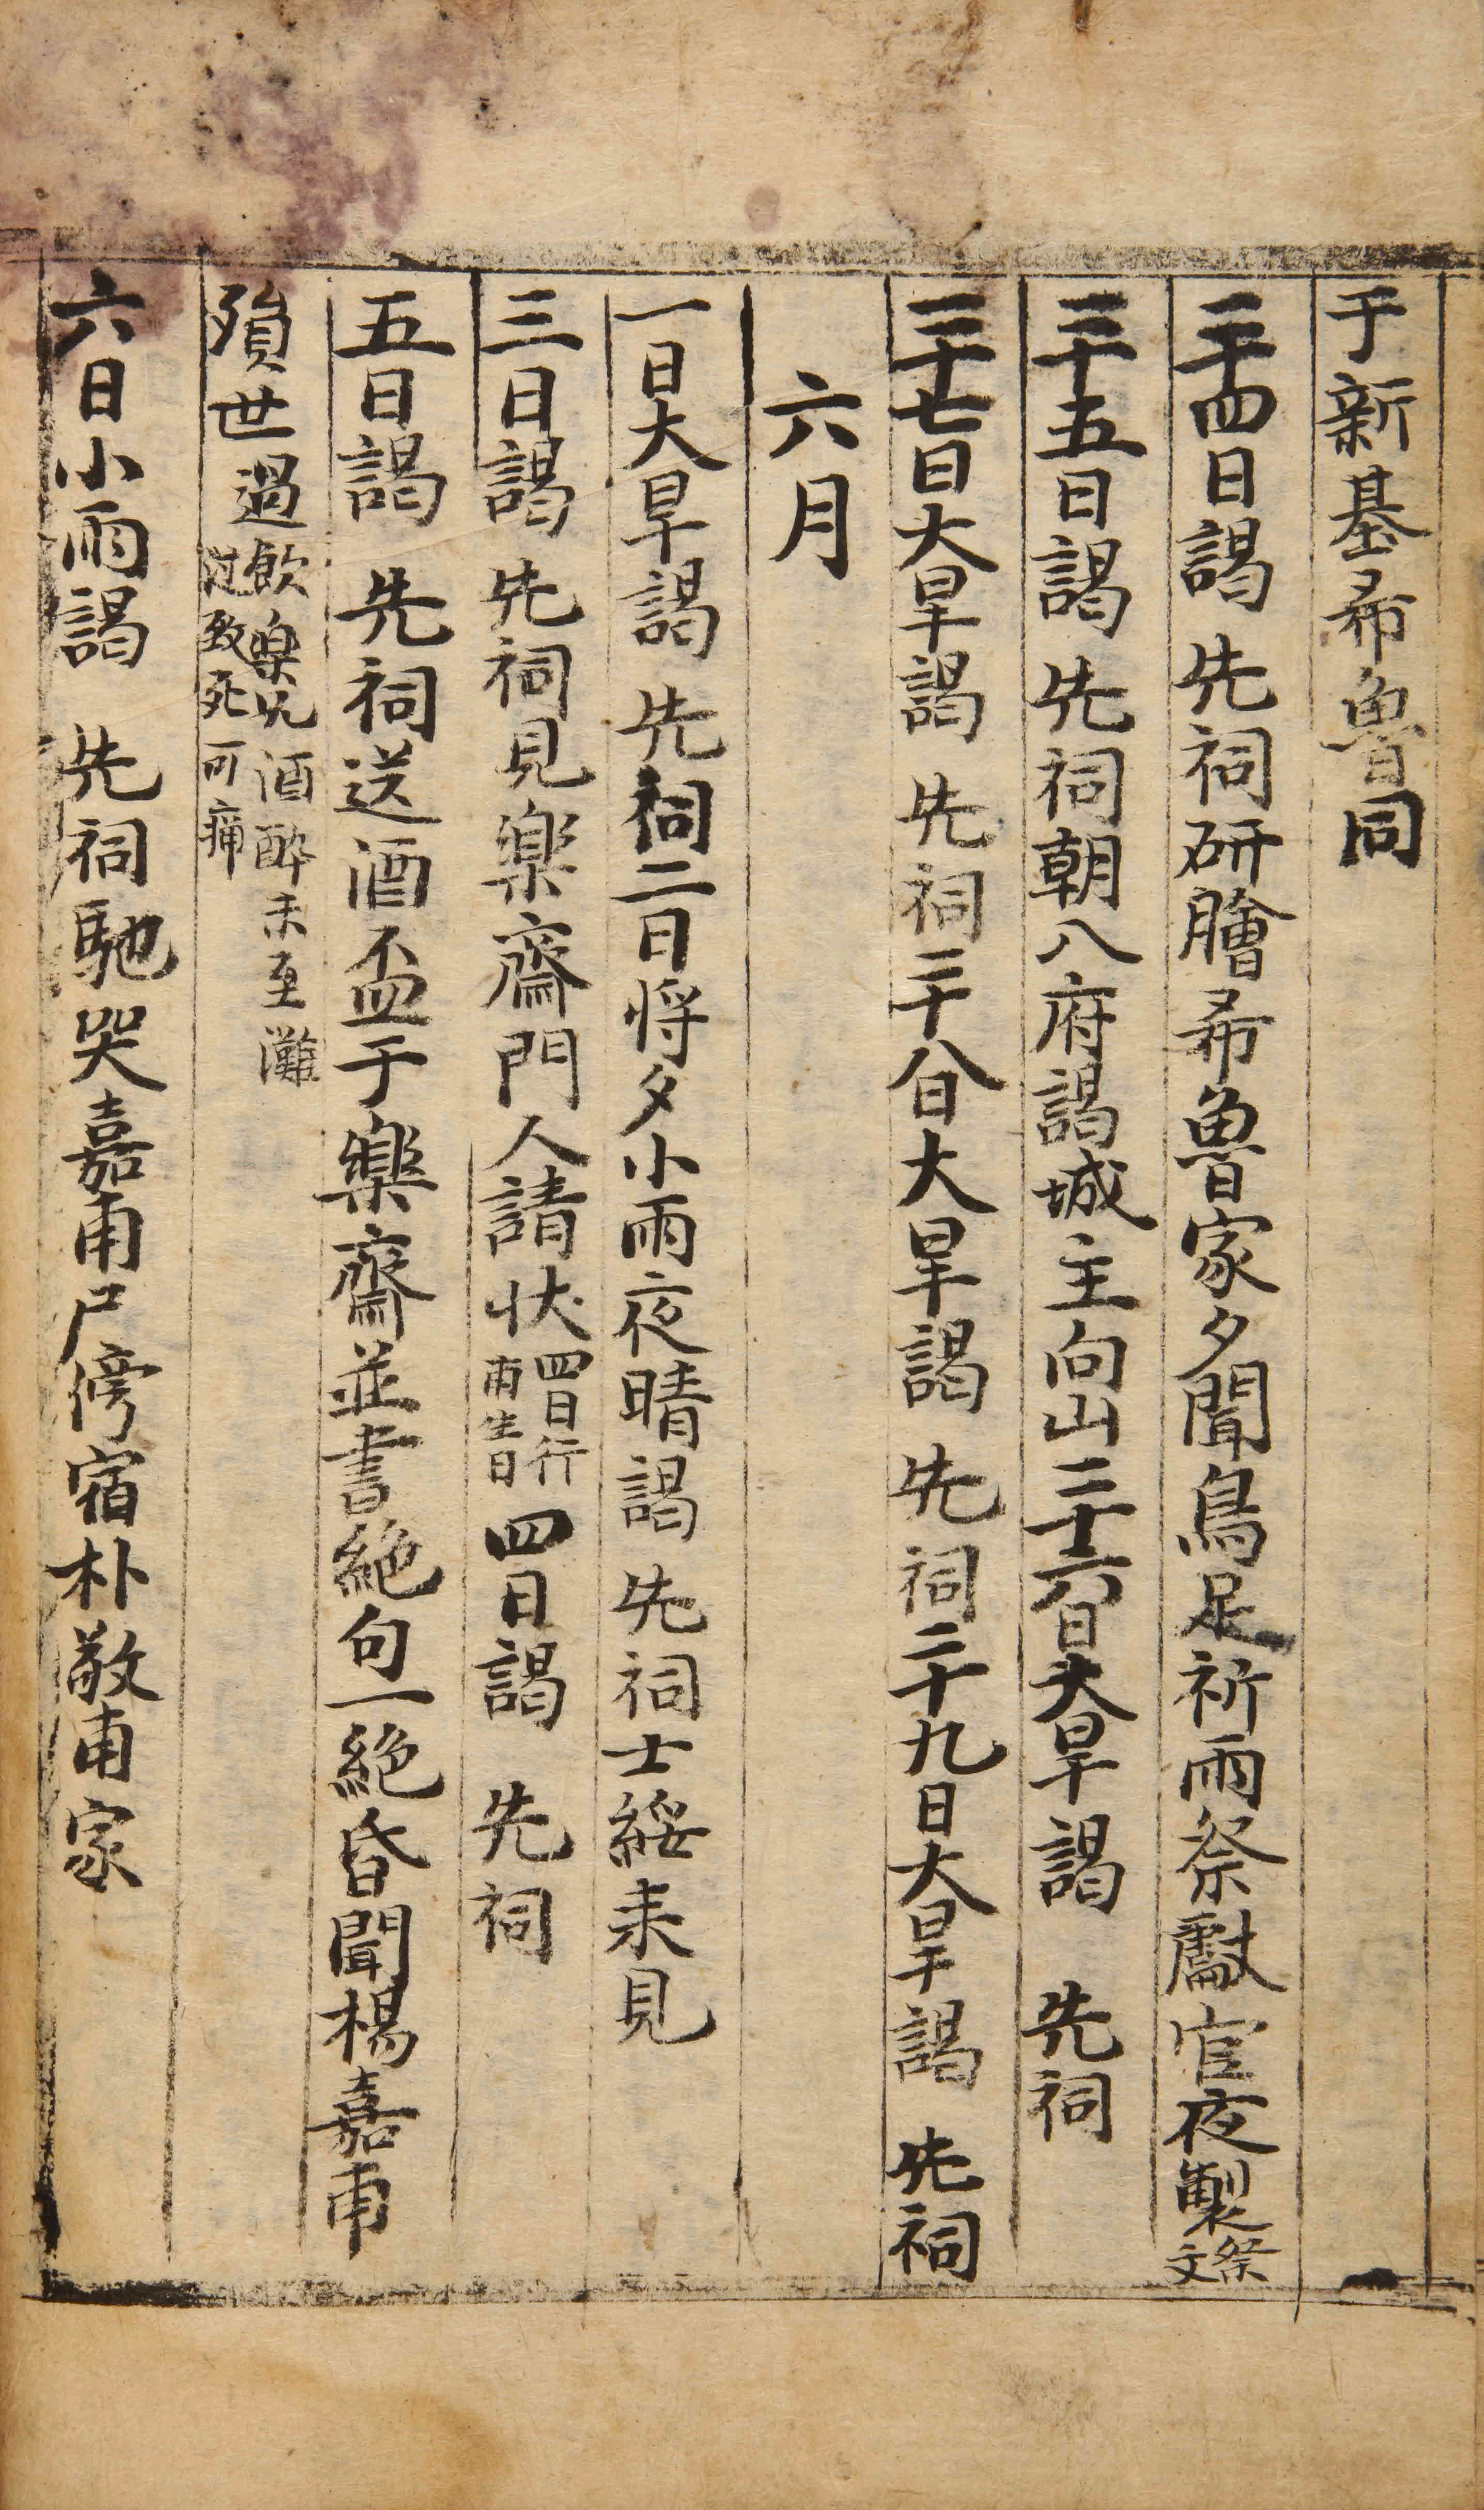 于新基希魯同
二十四日謁 先祠研膾希魯家夕聞鳥足祈雨祭獻官夜製祭文
二十五日謁 先祠朝入府謁城主向山二十六日大旱謁 先祠
二十七日大旱謁 先祠二十八日大旱謁 先祠二十九日大旱謁 先祠
六月
一日大旱謁 先祠二日将夕小雨夜晴謁 先祠士綏来見
三日謁 先祠見樂齋門人請狀四日行甫生日四日謁 先祠
五日謁 先祠送酒盃于樂齋並書絶句一絶昏聞楊嘉甫
殞世過飮樂兄酒酔未至灘过致死可痛
六日小雨謁 先祠馳哭嘉甫尸傍宿朴敬甫家